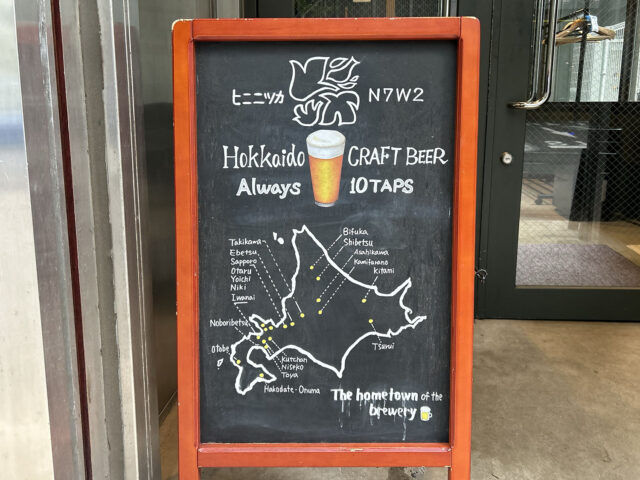 ヒニニヅカ N7W2
Hokkaido CRAFT BEER
Always 10TAPS
Takikawa
Ebetsu
Sapporo
Otaru
Yoichi
Niki
Iwanai
Noboribetsu
Otobe
Bifuka
Shibetsu
Asahikawa
Kamifurano
Kitami
Tsurui
Kutchan
Niseko
Toya
Hakodate・Onuma
The hometown of the
brewery